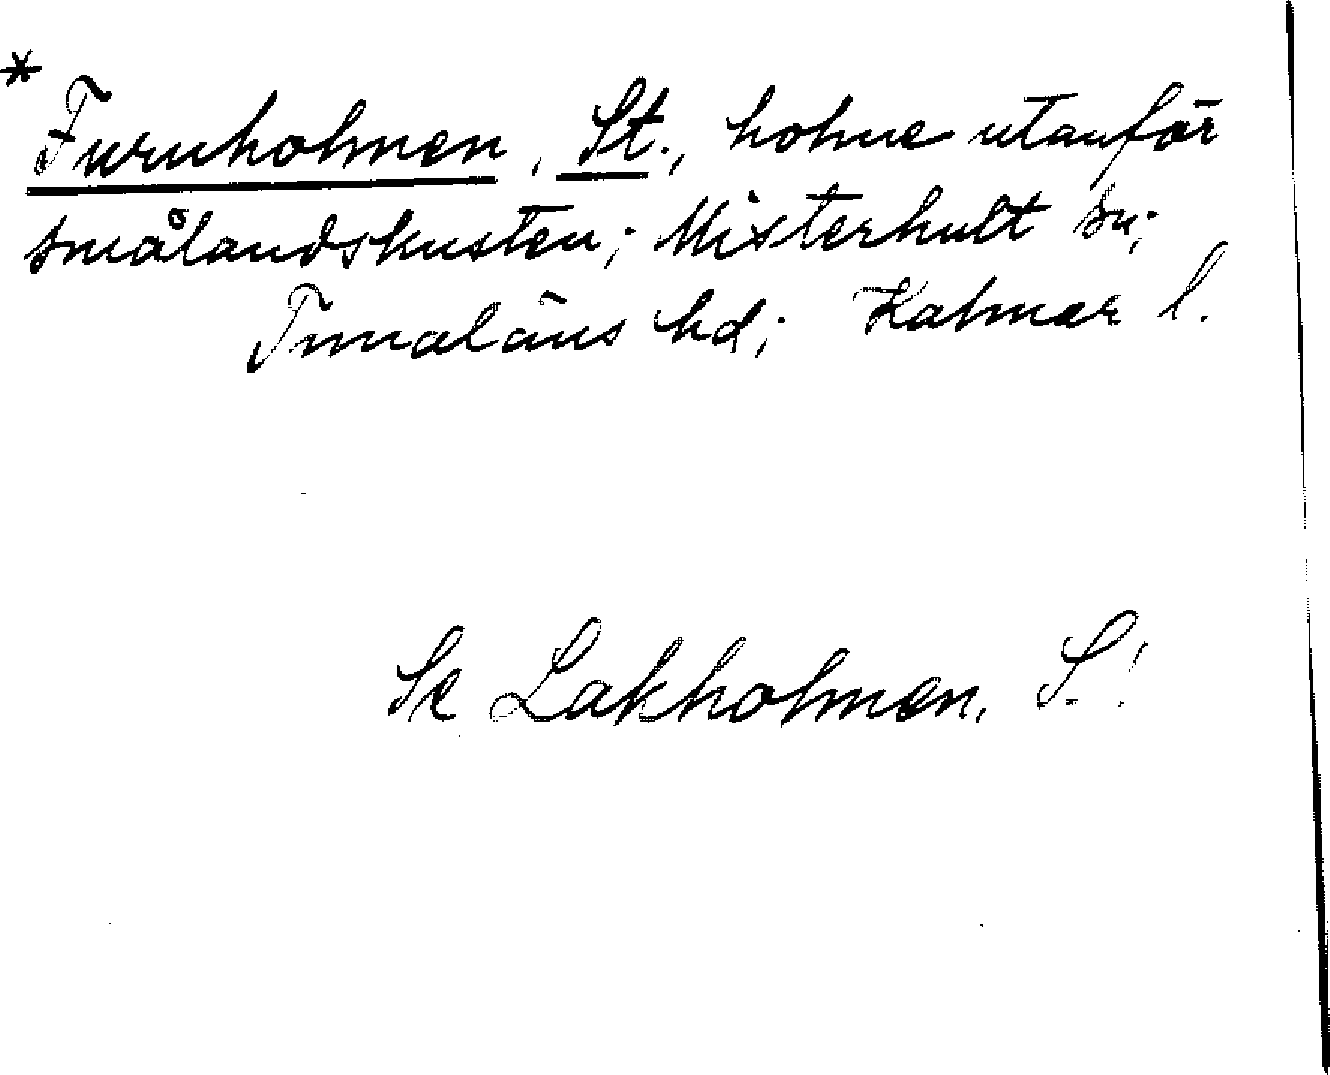 *
Furuholmen, St., holme utanför
smålandskusten; Misterhult sn;
Tunaläns hd; Kalmar l.
Se Lakholmen, S.!